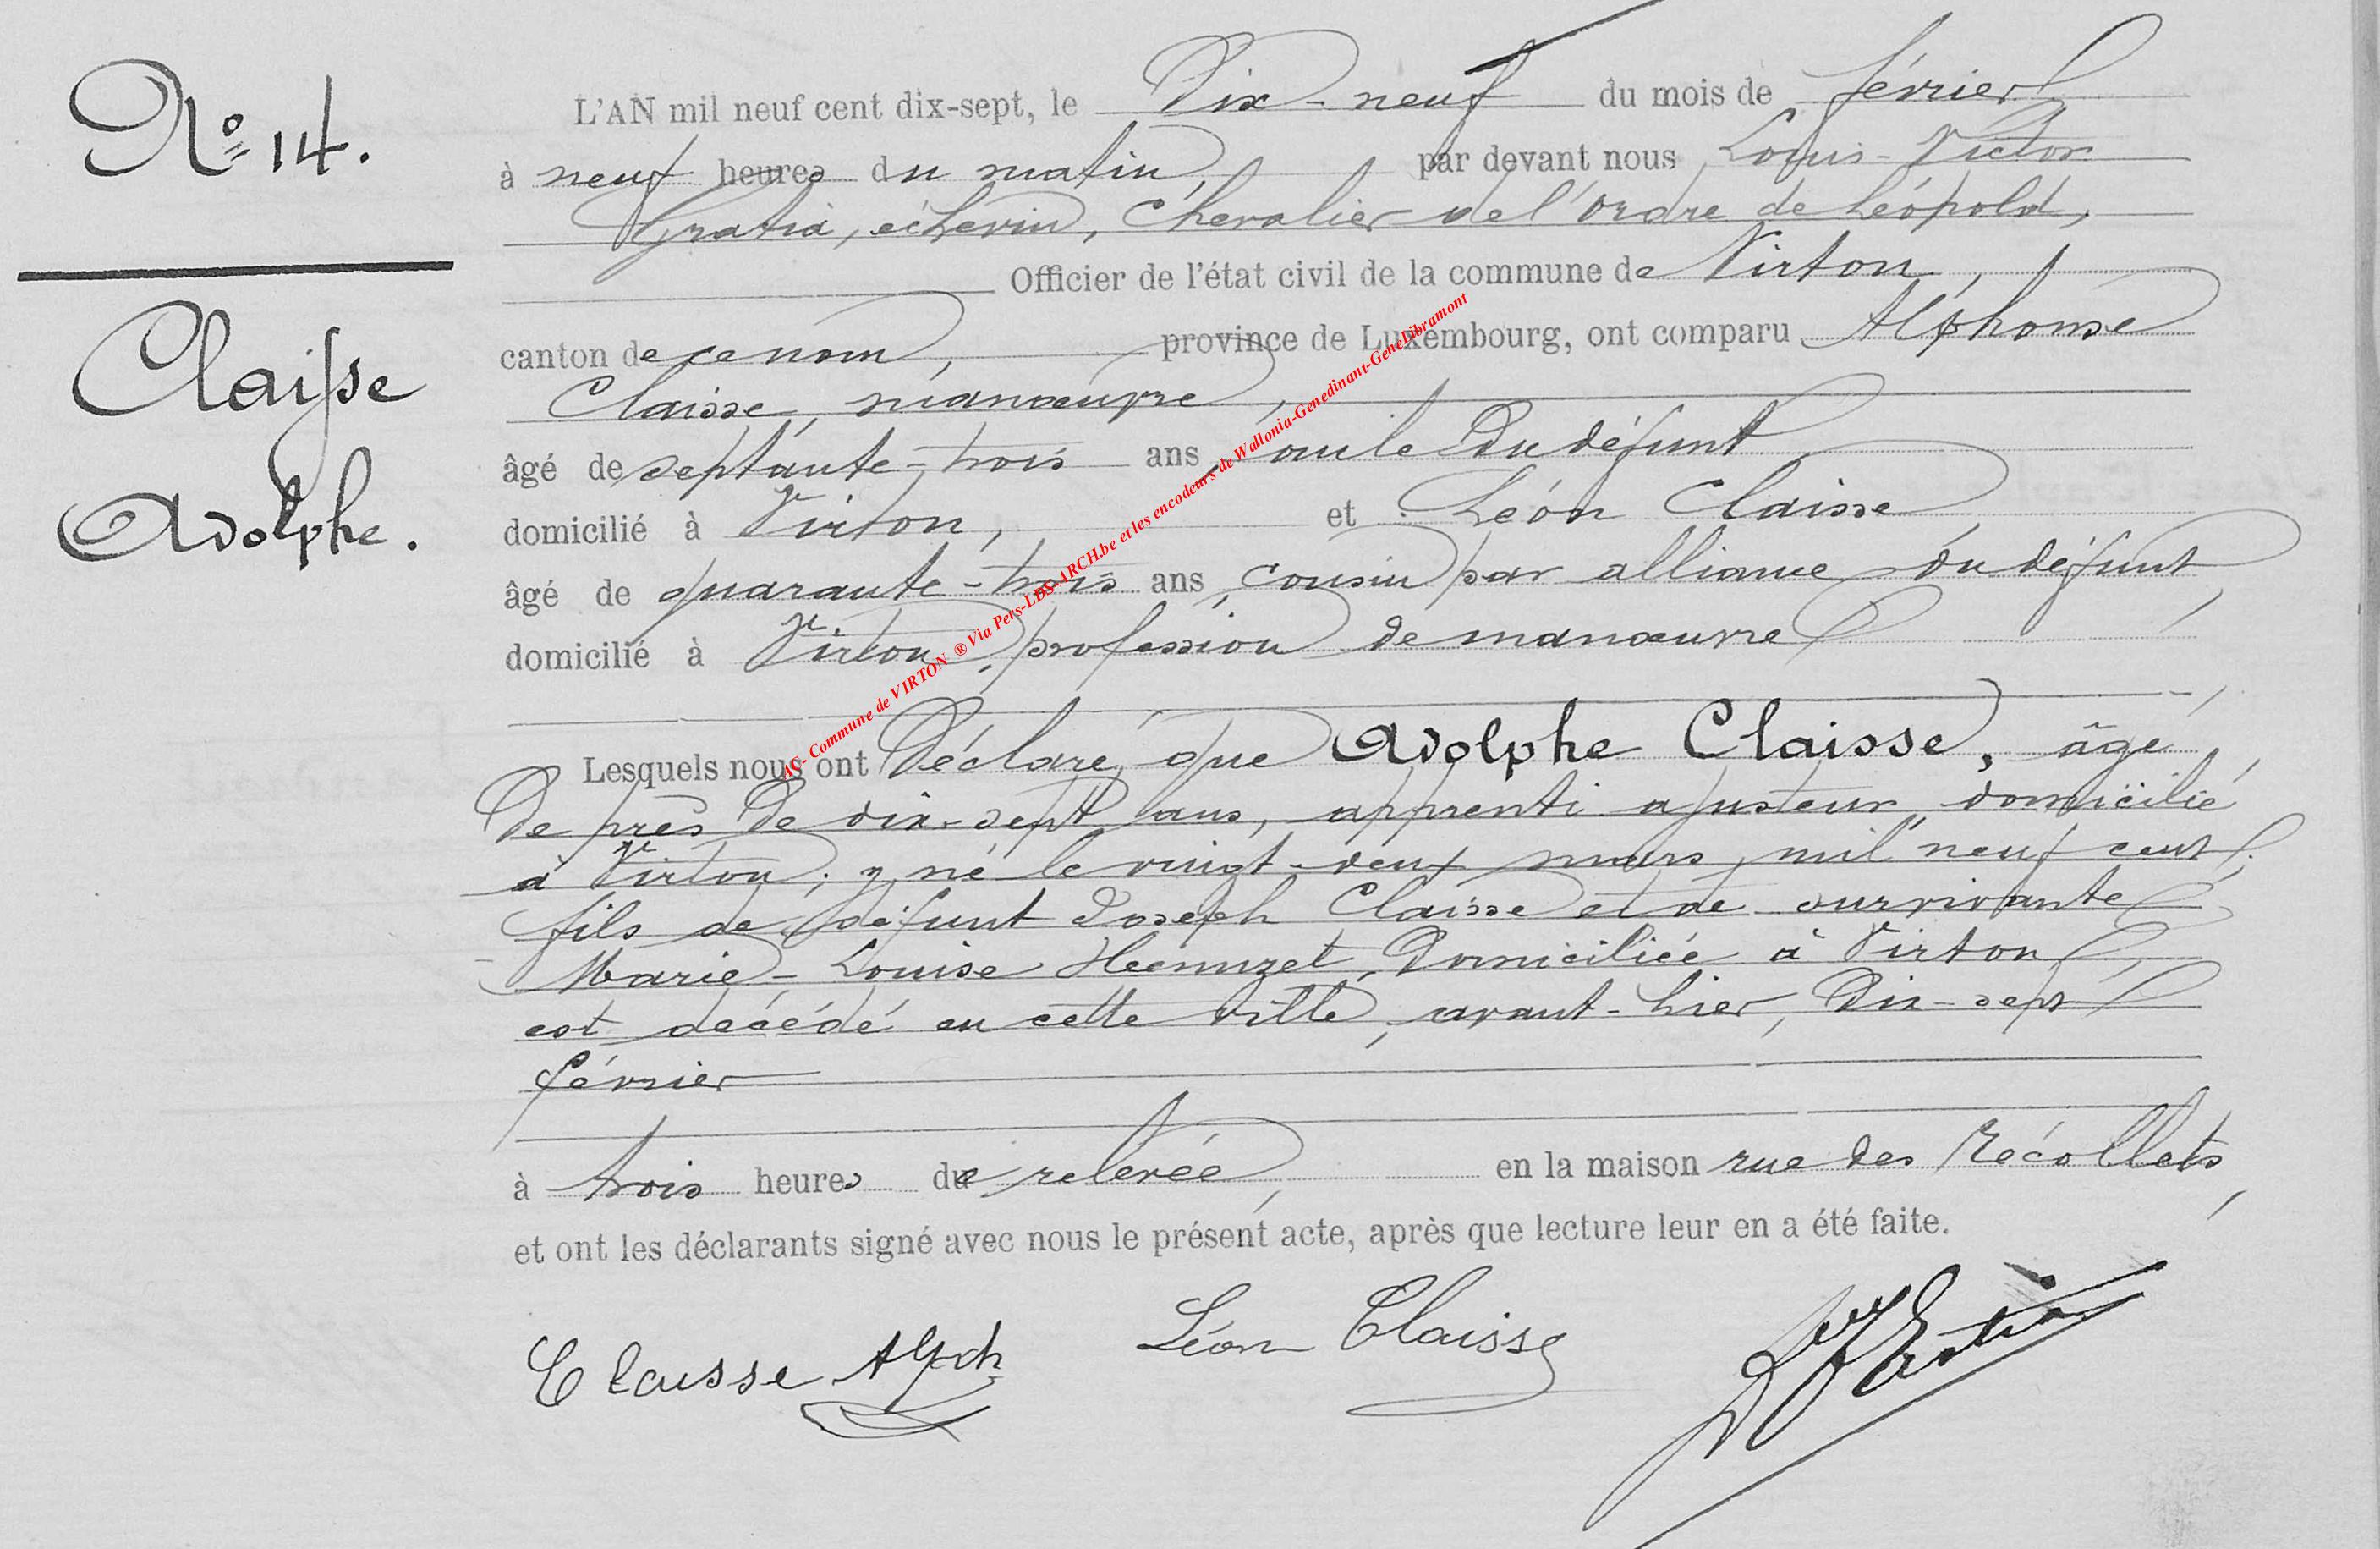 N° 14.
Claisse
Adolphe.
L'AN mil neuf cent dix-sept, le Dix-neuf du mois de février
à neuf heures du matin, par devant nous Louis-Victor
Gratia, échevin, Chevalier de l'Ordre de Léopold,
Officier de l'état civil de la commune de Virton,
canton de ce nom, province de Luxembourg, ont comparu Alphonse
Claisse, manœuvre,
âgé de septante-trois ans, oncle du défunt
domicilié à Virton, et Léon Claisse,
âgé de quarante-trois ans, cousin par alliance du défunt,
domicilié à Virton, profession de manœuvre
Lesquels nous ont Déclaré que Adolphe Claisse, âgé
De près de dix-sept ans, apprenti ajusteur, domicilié
à Virton, y né le vingt-deux mars mil neuf cent,
fils de défunt Joseph Claisse et de survivante
Marie-Louise, Domiciliée à Virton,
est décédé en cette ville, avant-hier, Dix-sept
février
à trois heures de relevée, en la maison rue des Récollets,
et ont les déclarants signé avec nous le présent acte, après que lecture leur en a été faite.
Claisse Alph Léon Claisse LVGratia
AC- Commune de VIRTON ® Via Pers-LDS-ARCH.be et les encodeurs de Wallonia-Genedinant-GeneLibramont